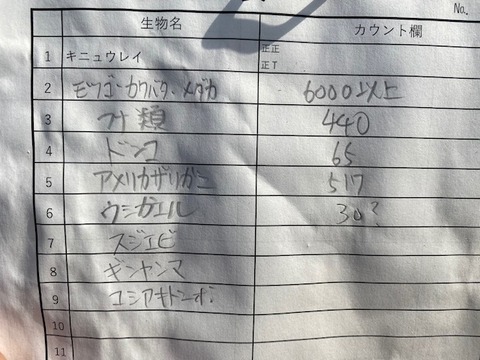 No.
生物名 カウント欄
1 キニュウレイ 正正 正T
2 モツゴ・カワバタ・メダカ 6000以上
3 フナ類 440
4 ドンコ 65
5 アメリカザリガニ 517
6 ウシガエル 30?
7 スジエビ
8 ギンヤンマ
9 コシアキトンボ
10
11